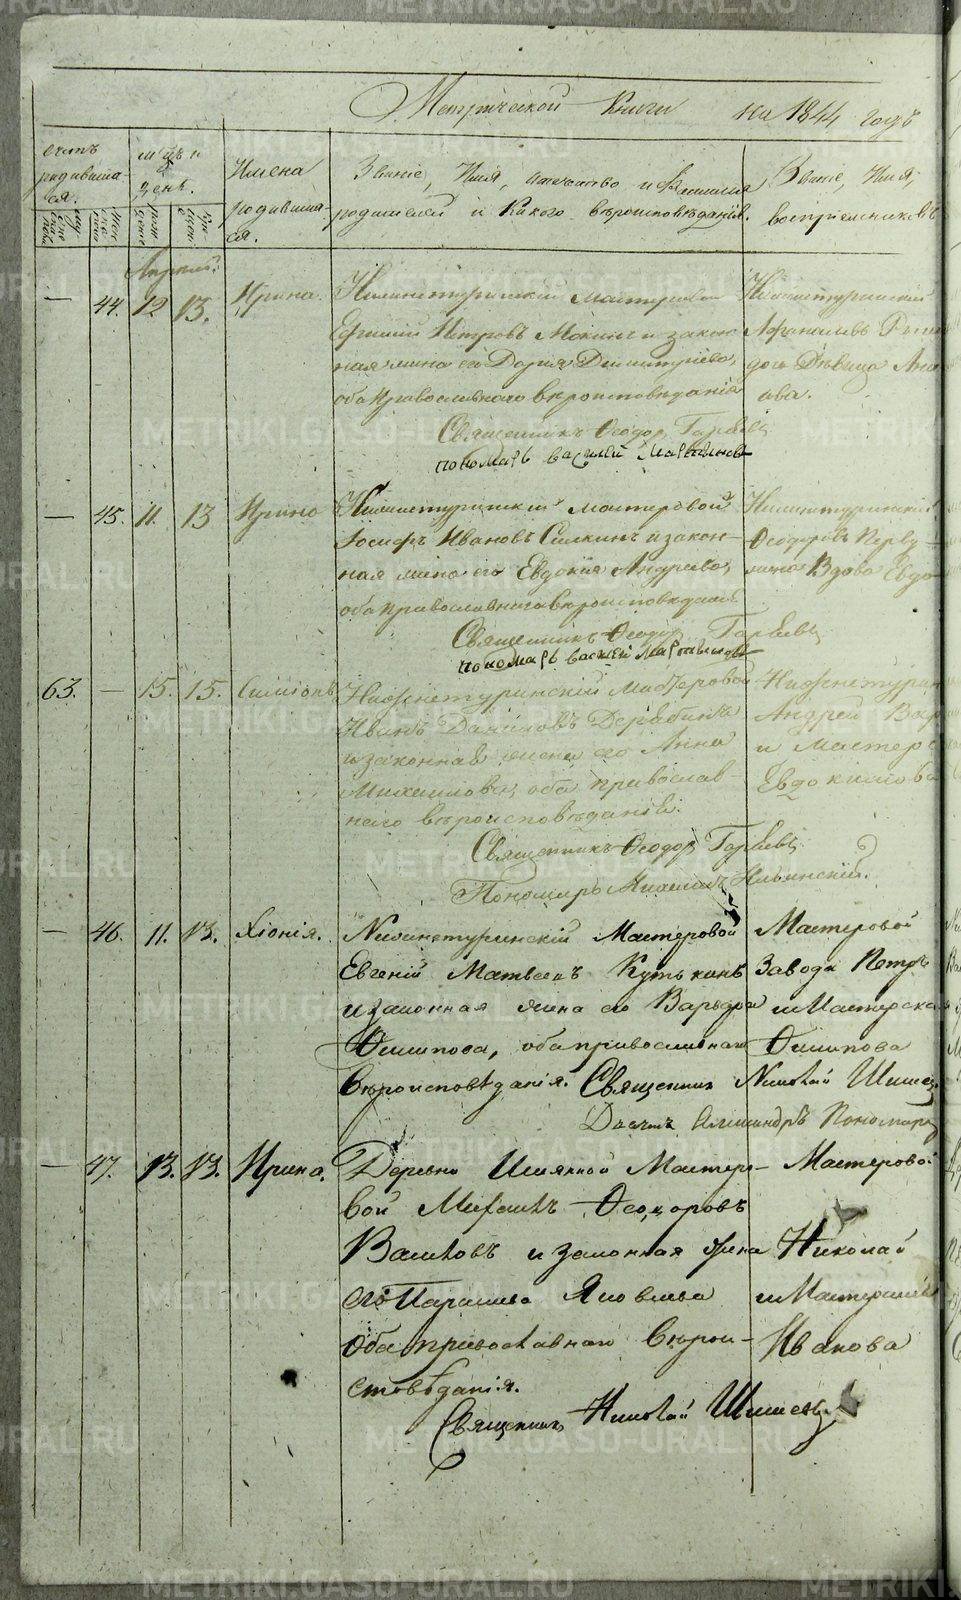 Метрической Книги на 1844 годъ
счетъ родившихся.
м-цъ и день.
Имена родившихся.
Званіе, Имя, отчество и Фамилія родителей и Какого вѣроисповѣданія.
Званіе, Имя, воспріемниковъ
Апрель.
— 44. 12 13. Ирина.
Нижнетуринскій мастеровой
Петровъ и закон-
ная жена его Дарья Димитріева,
оба православнаго вѣроисповѣданія
Священникъ Ѳеодор
пономарь василій Мартынов
Нижнетуринскій
дочь Дѣвица
ова.
— 45. 11. 13 Ирина
Нижнетуринскій мастеровой
Іосифъ Ивановъ Силкинъ и закон-
ная жена его Евдокія Андреева,
оба православнаго вѣроисповеданія
Священникъ Ѳеодор
пономарь василей Мартынов
Нижнетуринскій
Ѳеодоровъ
жена Вдова Евдо
63. — 15. 15. Симіонъ
Нижнетуринскій Мастеровой
Иванъ Даниловъ Дерябинъ
и законная жена его Анна
Михаилова, оба православ-
наго вѣроисповѣданія.
Священникъ Ѳеодор
Пономарь Михаилъ Ильинскій.
Нижнетурин
Андрей Вар
и Мастерс
Евдокимова
— 46. 11. 13. Хіонія.
Нижнетуринскій Мастеровой
Евгеній Матвеевъ Кутькинъ
и законная жена его Варвара
Филипова, оба православнаго
Вѣроисповѣданія. Священник Николай Шишев
Дьячек Александръ Пономарев
Мастеровой
Завода Петръ
и Мастерска
Филипова
— 47. 13. 13. Ирина.
Деревни Мастеро-
вой Михаилъ Ѳеодоровъ
Валковъ и законная жена
его Парасковья Яковлева
Оба православнаго Вѣрои-
споведанія.
Священник Николай Шишевъ
Мастеровой
Николай
и Мастерской
Иванова
METRIKI.GASO-URAL.RU